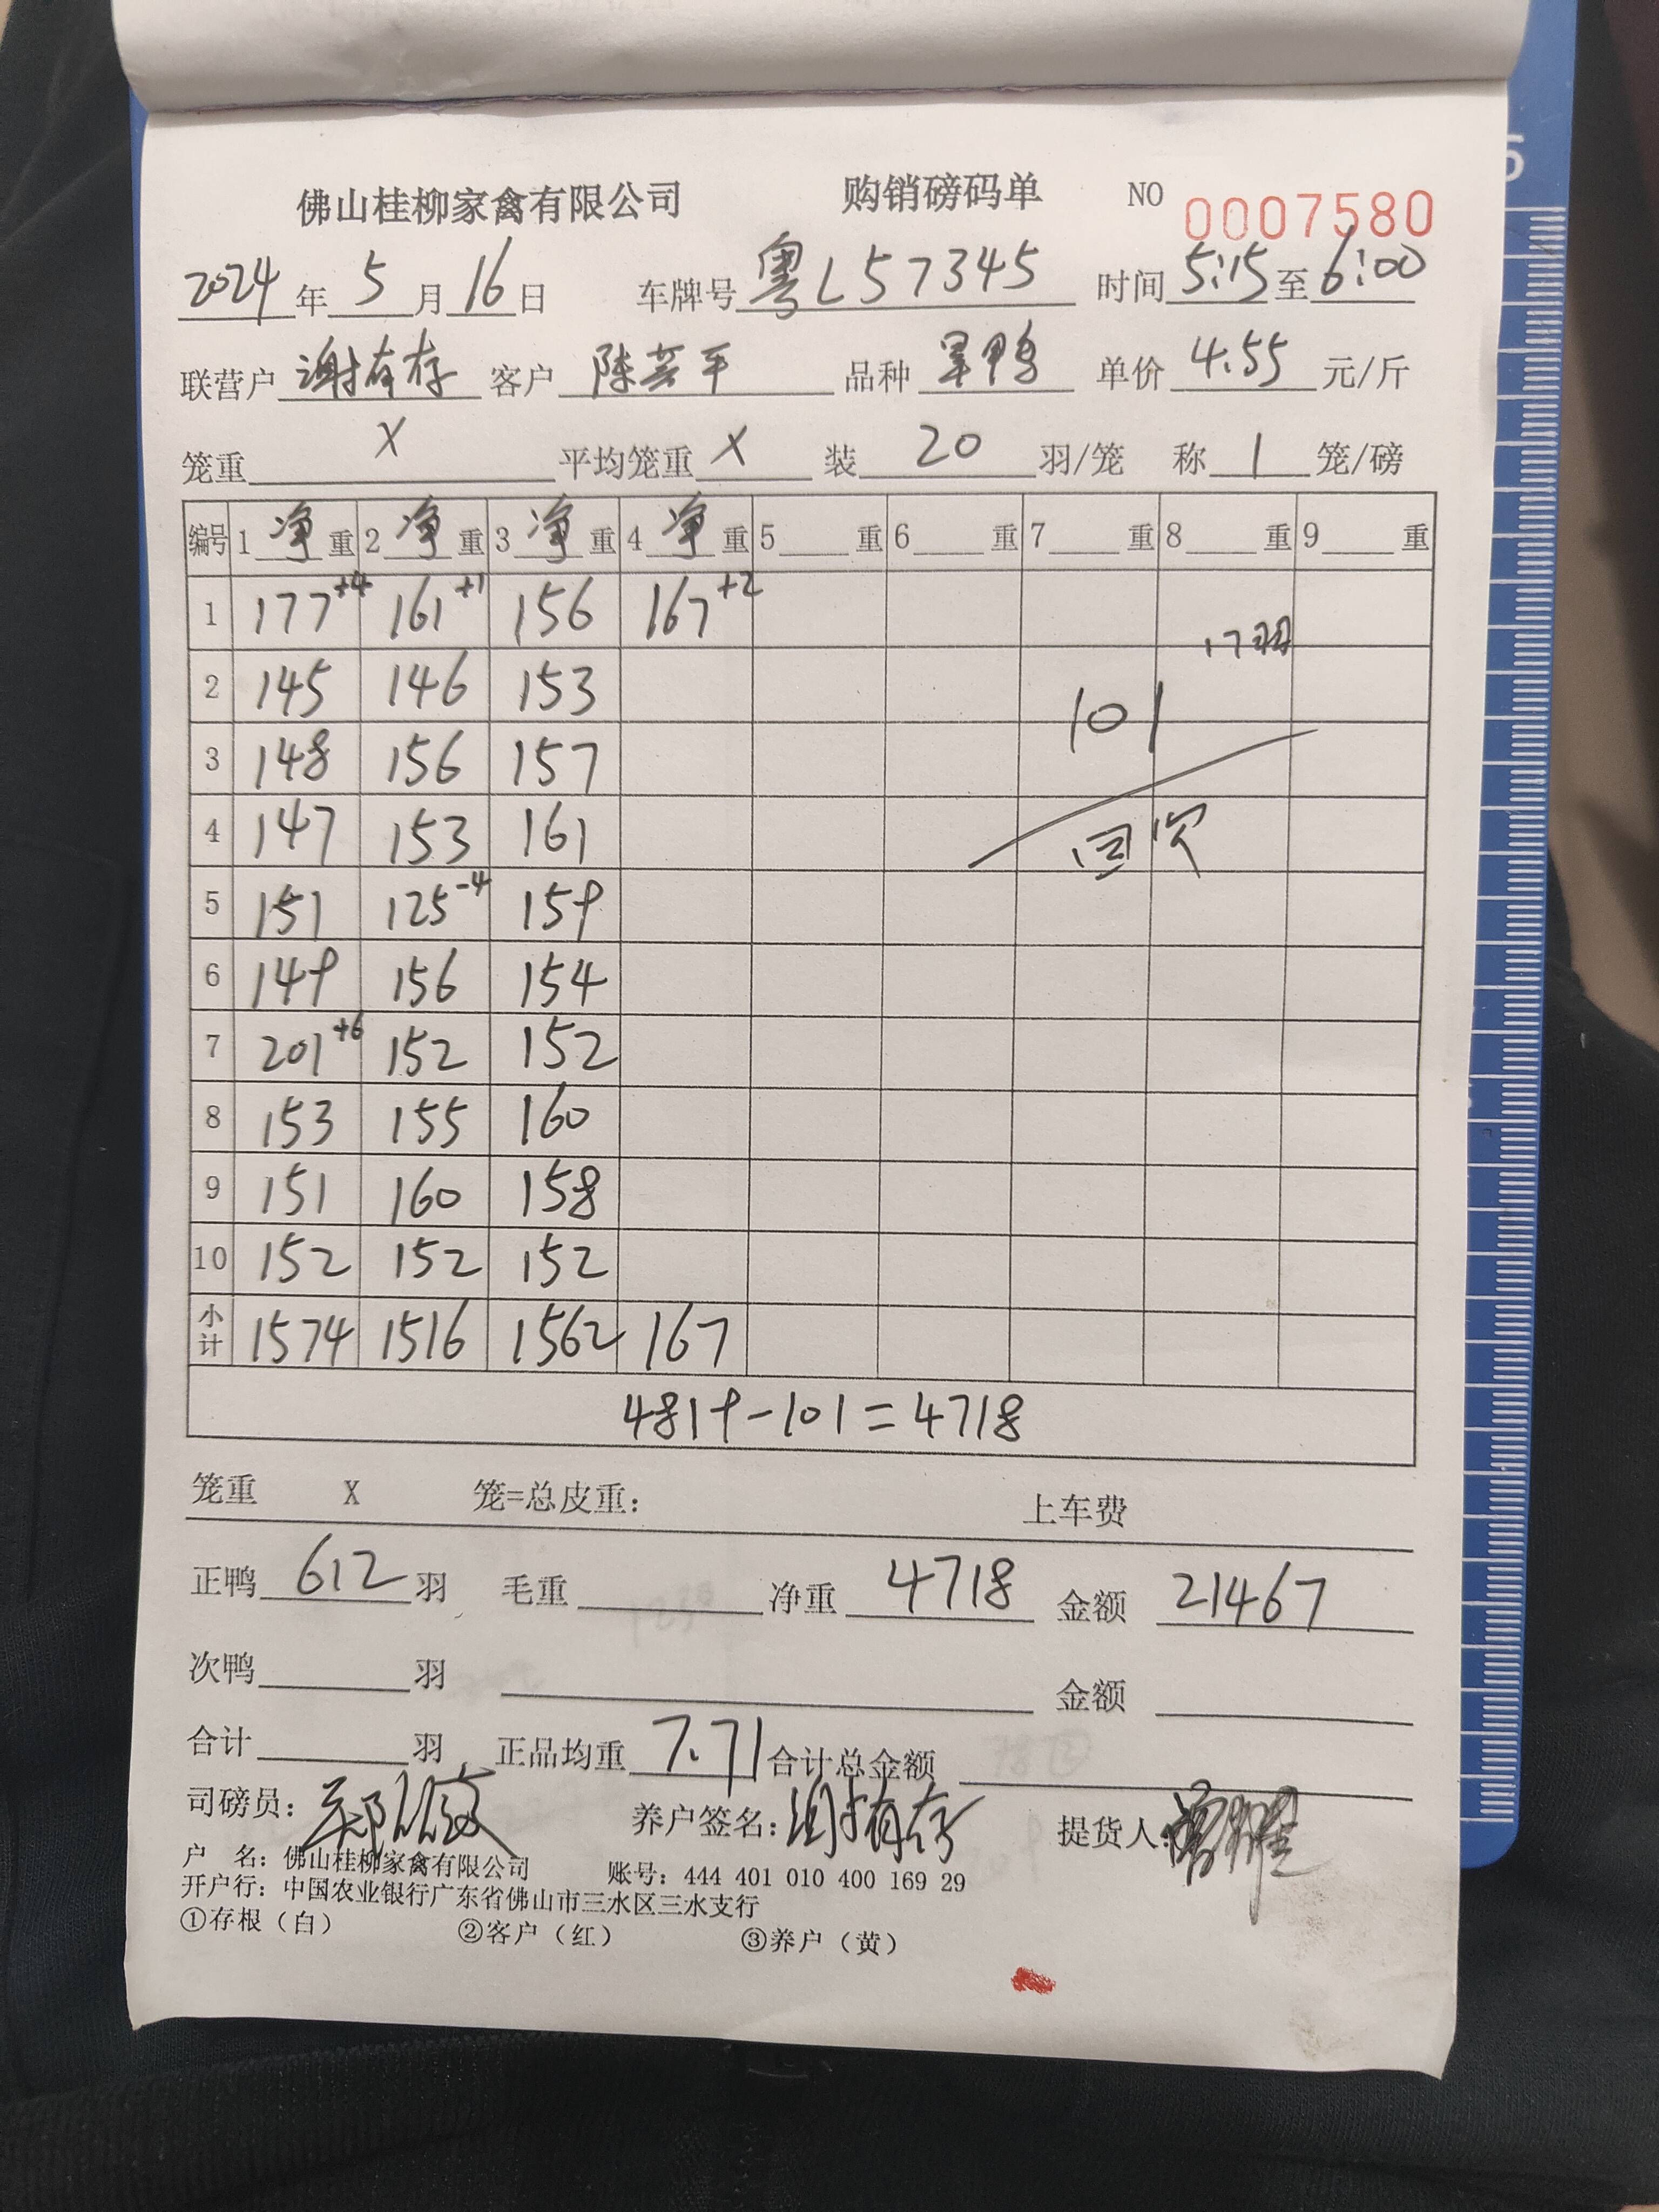 佛山桂柳家禽有限公司 购销磅码单 NO 0007580
2024年5月16日 车牌号粤L57345 时间5:15至6:00
联营户谢有存 客户 陈芸平 品种 旱鸭 单价 4.55 元/斤
笼重 X 平均笼重 X 装 20 羽/笼 称 1 笼/磅
编号 1 净 重 2 净 重 3 净 重 4 净 重 5 重 6 重 7 重 8 重 9 重
1 177+4 161+1 156 167+2
17羽
2 145 146 153
101
3 148 156 157
4 147 153 161
回
5 151 125-4 159
6 149 156 154
7 201+6 152 152
8 153 155 160
9 151 160 158
10 152 152 152
小计 1574 1516 1562 167
4819-101=4718
笼重 X 笼=总皮重: 上车费
正鸭 612 羽 毛重 净重 4718 金额 21467
次鸭 羽 金额
合计 羽 正品均重 7.71 合计总金额
司磅员: 养户签名:谢有存 提货人:
户 名: 佛山桂柳家禽有限公司 账号: 444 401 010 400 169 29
开户行: 中国农业银行广东省佛山市三水区三水支行
①存根（白） ②客户（红） ③养户（黄）